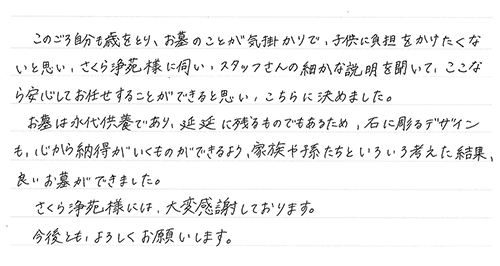 このごろ自分も歳をとり、お墓のことが気掛かりで、子供に負担をかけたくな
いと思い、さくら浄苑様に伺い、スタッフさんの細かな説明を聞いて、ここな
ら安心してお任せすることができると思い、こちらに決めました。
お墓は永代供養であり、延延に残るものでもあるため、石に彫るデザイン
も、心から納得がいくものができるよう、家族や子孫たちといろいろ考えた結果、
良いお墓ができました。
さくら浄苑様には、大変感謝しております。
今後とも、よろしくお願いします。